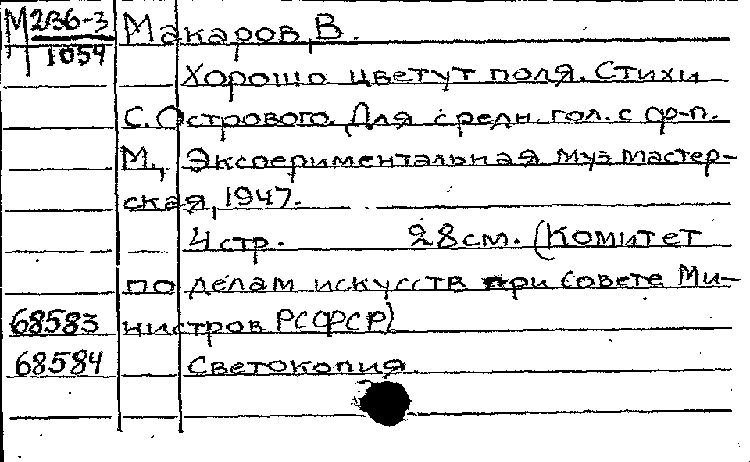 М 2136-3
1059
Макаров, В.
Хорошо цветут поля. Стихи
С. Острового. Для средн. гол. с ф-п.
М., Экспериментальная муз. мастер-
ская, 1947.
4 стр. 28 см. (Комитет
по делам искусств при Совете Ми-
68583 нистров РСФСР)
68584 Светокопия.